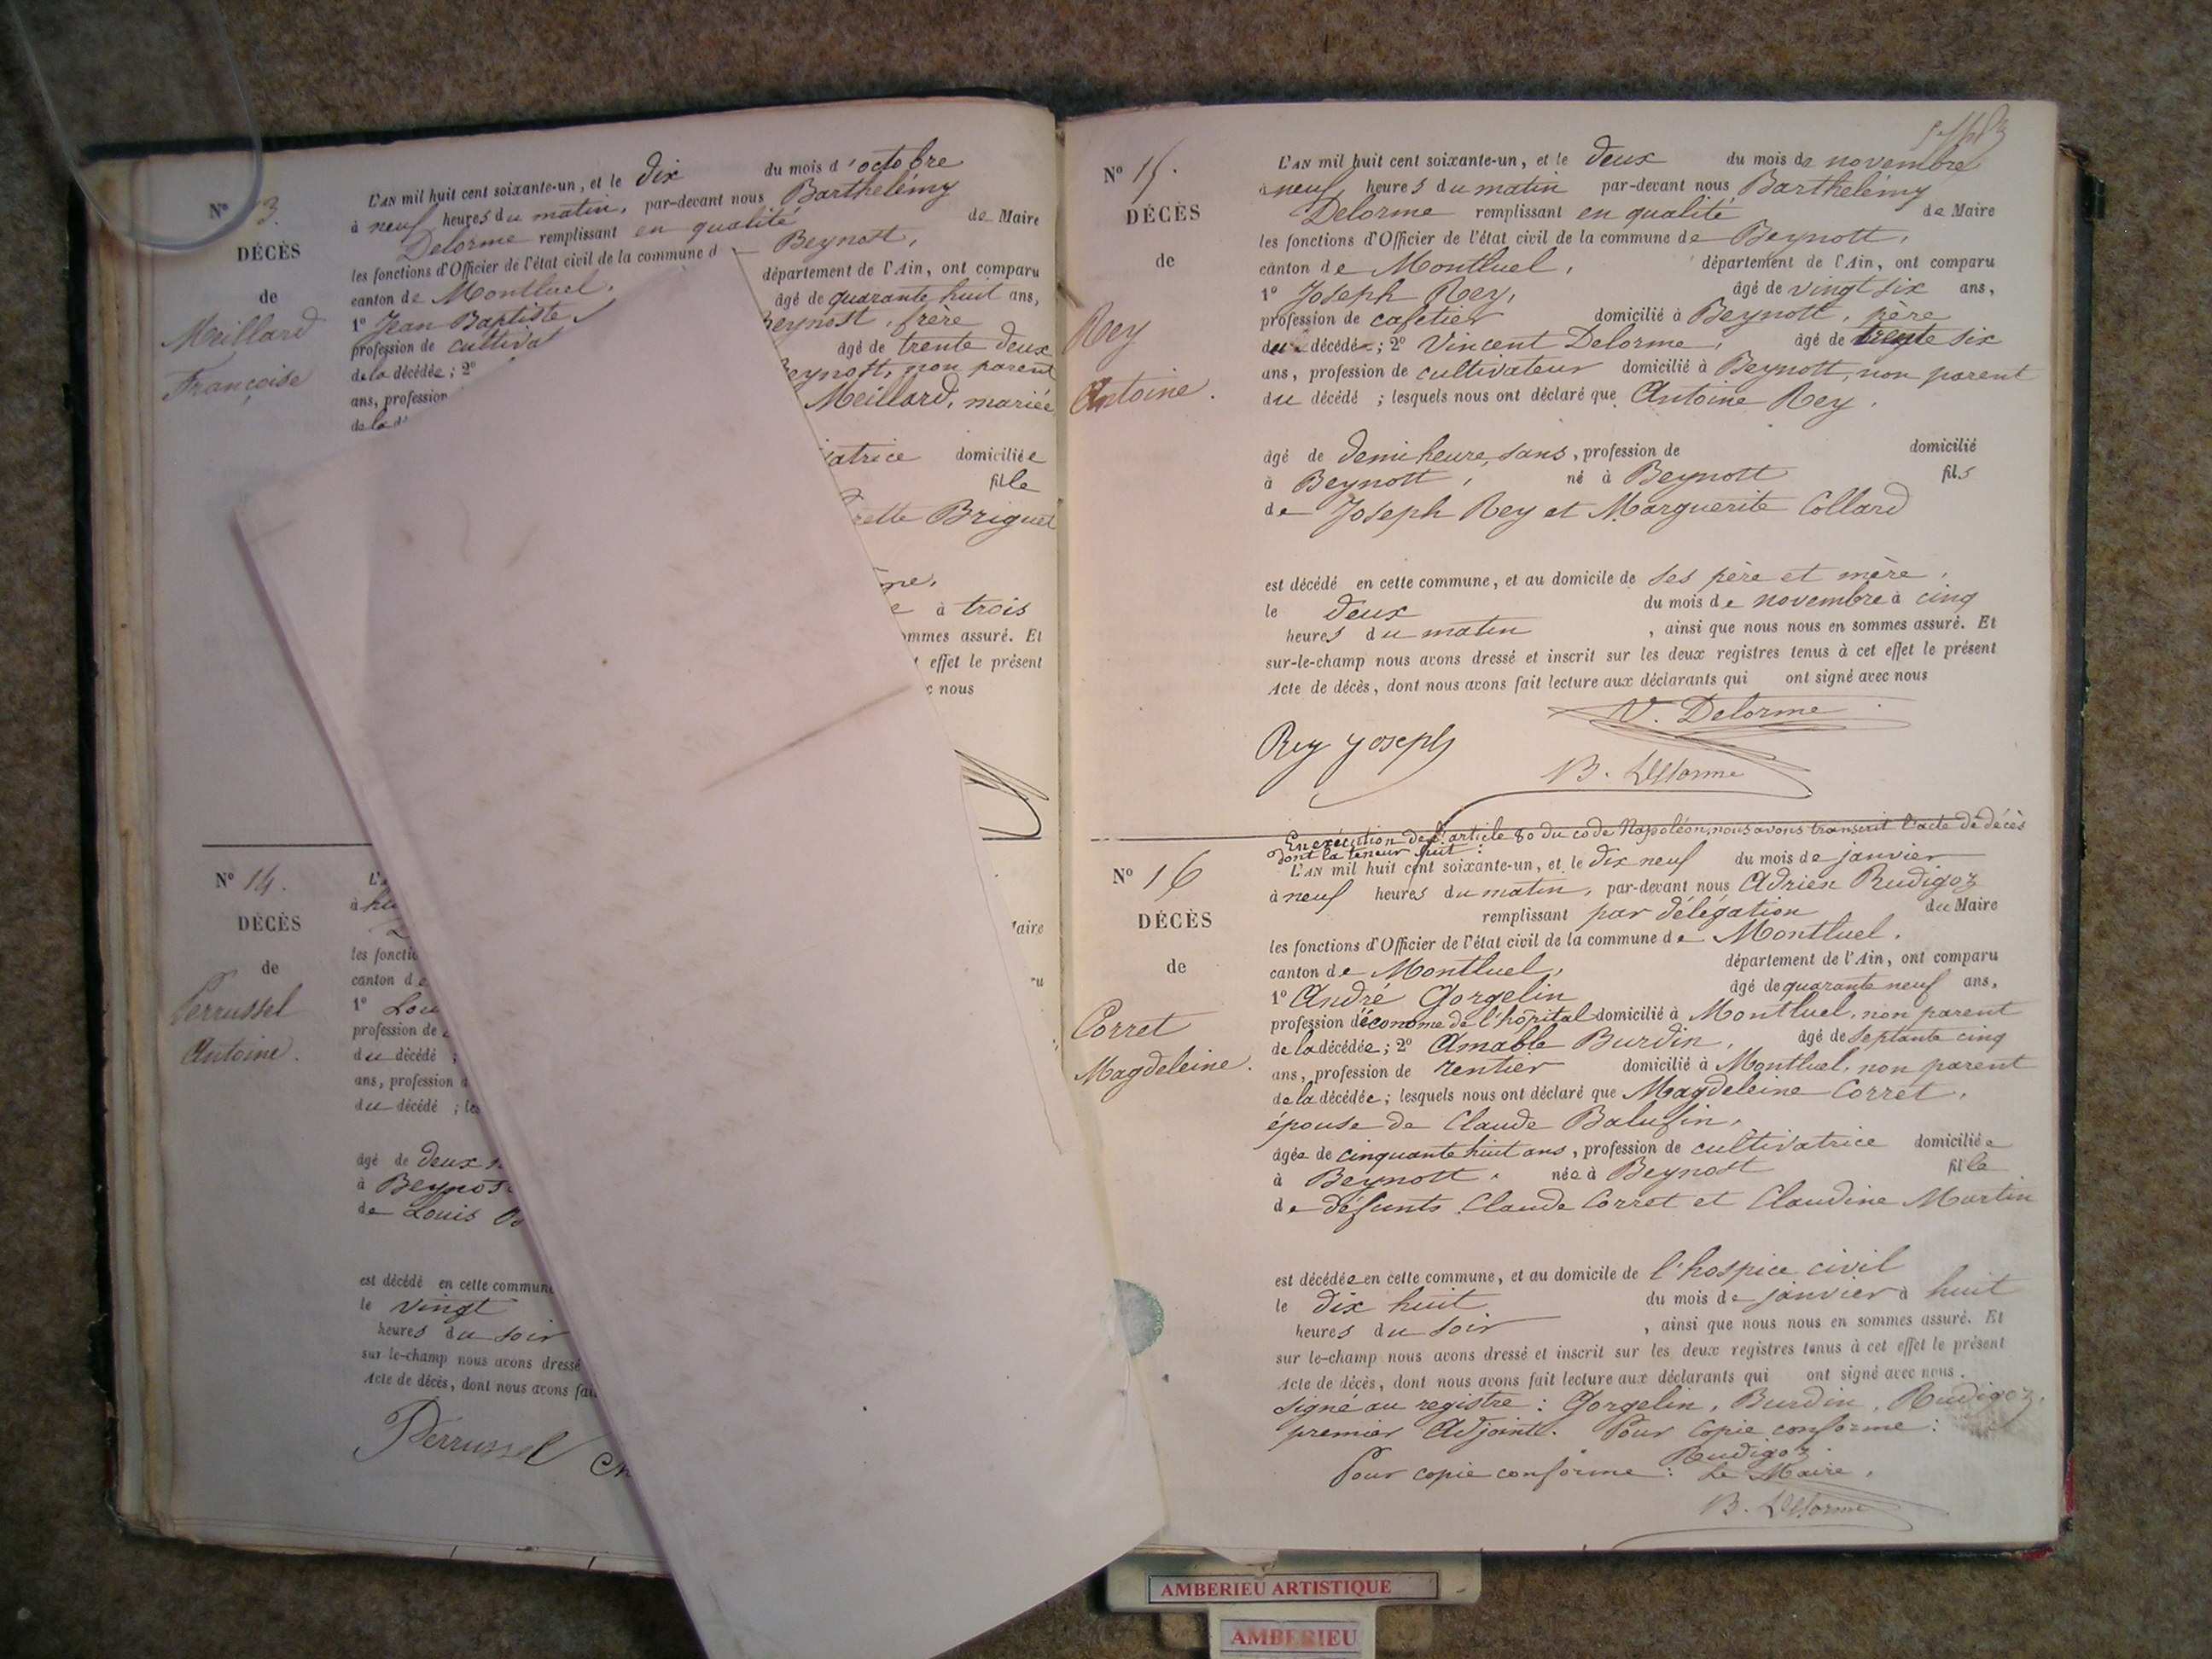 Nº 13.
DÉCÈS
de
Meillard
Françoise
L'AN mil huit cent soixante-un, et le dix du mois d'octobre
à neuf heures du matin, par-devant nous Barthelémy
Delorme remplissant en qualité de Maire
les fonctions d'Officier de l'état civil de la commune d Beynost,
canton de Montluel, département de l'Ain, ont comparu
1º Jean Baptiste âgé de quarante huit ans,
profession de cultivat Beynost, frère
de la décédée; 2º âgé de trente deux
ans, profession Beynost, non parent
de la d Meillard, mariée
atrice domiciliée
fille
rette Briguet
me,
e à trois
ommes assuré. Et
effet le présent
c nous
Nº 14.
DÉCÈS
de
Perrussel
Antoine.
L'A
à
aire
les fonctio
canton de
1º Lou
profession de
du décédé ;
ans, profession d
du décédé ; les
âgé de deux
à Beynos
de Louis
est décédé en cette commun
le vingt
heures du soir
sur-le-champ nous avons dressé
Acte de décès, dont nous avons fai
Perrussel
Nº 15.
DÉCÈS
de
Rey
Antoine.
L'AN mil huit cent soixante-un, et le deux du mois de novembre
à neuf heures du matin par-devant nous Barthelémy
Delorme remplissant en qualité de Maire
les fonctions d'Officier de l'état civil de la commune de Beynost,
canton de Montluel, département de l'Ain, ont comparu
1º Joseph Rey, âgé de vingt six ans,
profession de cafetier domicilié à Beynost, père
du décédé; 2º Vincent Delorme, âgé de trente six
ans, profession de cultivateur domicilié à Beynost, non parent
du décédé ; lesquels nous ont déclaré que Antoine Rey,
âgé de demi heure, sans, profession de domicilié
à Beynost, né à Beynost fils
de Joseph Rey et Marguerite Collard
est décédé en cette commune, et au domicile de ses père et mère,
le deux du mois de novembre à cinq
heures du matin , ainsi que nous nous en sommes assuré. Et
sur-le-champ nous avons dressé et inscrit sur les deux registres tenus à cet effet le présent
Acte de décès, dont nous avons fait lecture aux déclarants qui ont signé avec nous
V. Delorme
Rey Joseph
B. Delorme
En exécution de l'article 80 du code Napoléon, nous avons transcrit l'acte de décès
dont la teneur suit :
Nº 16
DÉCÈS
de
Corret
Magdeleine.
L'AN mil huit cent soixante-un, et le dix neuf du mois de janvier
à neuf heures du matin, par-devant nous Adrien Rudigoz
remplissant par délégation du Maire
les fonctions d'Officier de l'état civil de la commune de Montluel,
canton de Montluel, département de l'Ain, ont comparu
1º André Gorgelin âgé de quarante neuf ans,
profession d'économe de l'hôpital domicilié à Montluel, non parent
de la décédée; 2º Amable Burdin, âgé de septante cinq
ans, profession de rentier domicilié à Montluel, non parent
de la décédée; lesquels nous ont déclaré que Magdeleine Corret,
épouse de Claude Balufin,
âgée de cinquante huit ans, profession de cultivatrice domiciliée
à Beynost, née à Beynost fille
de défunts Claude Corret et Claudine Martin
est décédée en cette commune, et au domicile de l'hospice civil
le dix huit du mois de janvier à huit
heures du soir , ainsi que nous nous en sommes assuré. Et
sur le-champ nous avons dressé et inscrit sur les deux registres tenus à cet effet le présent
Acte de décès, dont nous avons fait lecture aux déclarants qui ont signé avec nous.
Signé au registre : Gorgelin, Burdin, Rudigoz,
premier Adjoint. Pour Copie conforme :
Rudigoz
Pour copie conforme : Le Maire,
B. Delorme
AMBERIEU ARTISTIQUE
AMBERIEU